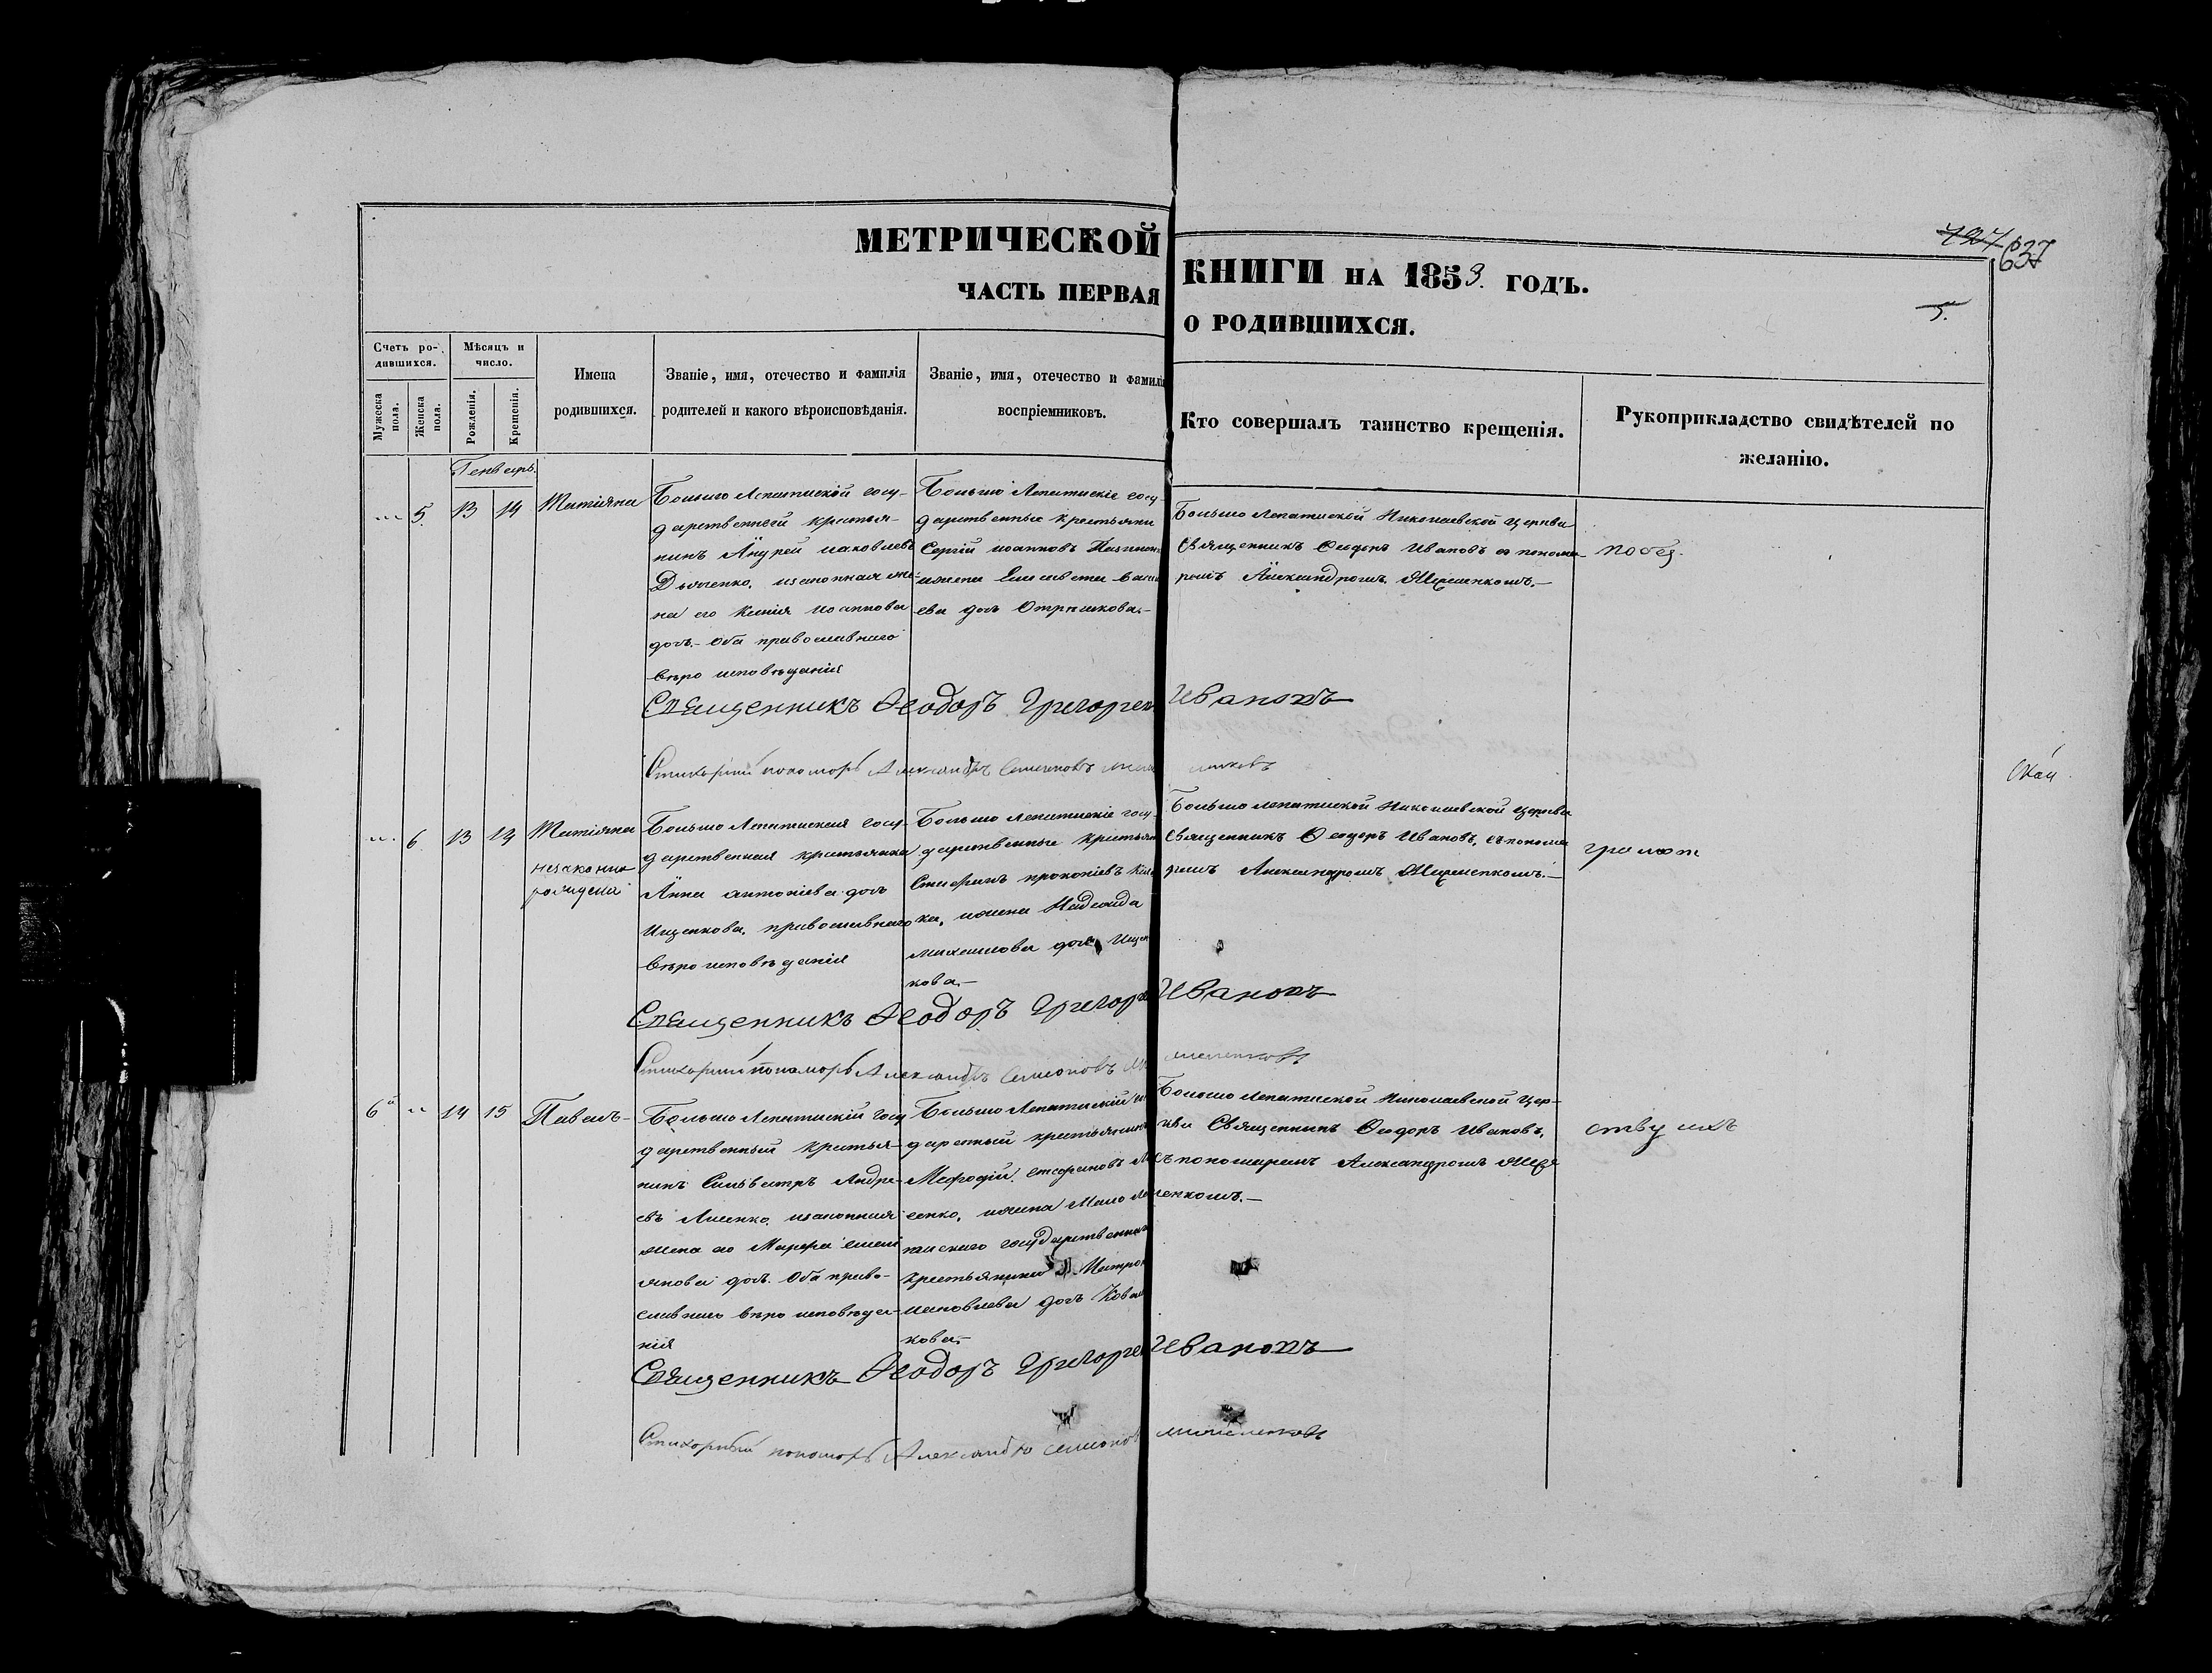 МЕТРИЧЕСКОЙ КНИГИ НА 1853. ГОДЪ.
ЧАСТЬ ПЕРВАЯ О РОДИВШИХСЯ.
637
5.
Счетъ ро-
дившихся.
Мужеска
пола.
Женска
пола.
Мѣсяцъ и
число.
Рожденія.
Крещенія.
Имена
родившихся.
Званіе, имя, отечество и фамилія
родителей и какого вѣроисповѣданія.
Званіе, имя, отечество и фамилія
воспріемниковъ.
Кто совершалъ таинство крещенія.
Рукоприкладство свидѣтелей по
желанію.
Генварь.
5. 13 14
Татіяна
Больше Лепатиской госу-
дарственной крестья-
нинъ Андрей иаковлевъ
Дьяченко, изаконная же-
на его Ксенія иоаннова
доч. Оба православнаго
вѣро исповѣданія
Больше Лепатискіе госу-
дарственные крестьяни
Сергій иоанновъ
ижена Елисавета
ева доч Отрышкова.
Больше лепатиской Николаевской церкви
Священникъ Феодоръ Ивановъ съ понома-
ремъ Александромъ
по без-
Священникъ Феодоръ Григорьевъ Ивановъ
Стихарный пономорь Александръ Семеновъ
6. 13 14
Татіяна
незаконно
рождена
Больше Лепатиская госу-
дарственная крестьянка
Анна антоніева доч
Ищенкова, православнаго
вѣро исповѣданія
Больше лепатискіе госу-
дарственные крестьян
Стефанъ прокопіевъ
ка, ижена Надежда
михаилова доч Ищен
кова.
Больше лепатиской Николаевской церкви
Священникъ Феодоръ Ивановъ, съ понома
ремъ Александромъ
грамот
Священникъ Феодоръ Григорьевъ Ивановъ
Стихарный пономорь Александръ Семионовъ
6 14 15
Павелъ
Больше Лепатискій госу
дарственный крестья-
нинъ Сильвестръ Андре-
евъ Лисенко, изаконная
жена его Марфа
янова доч. Оба право-
славнаго вѣро исповѣда-
нія
Больше Лепатискій
дарстный крестьянинъ
Мефодій стефановъ
сенко, ижена Мало ле
патискаго государственнаго
крестьянина
иаковлева доч Ковал
кова.
Больше лепатиской Николаевской цер-
кви Священникъ Феодоръ Ивановъ,
съ пономаремъ Александромъ
ству ихъ
Священникъ Феодоръ Григорьевъ Ивановъ
Стихарный пономорь Александръ Семионовъ